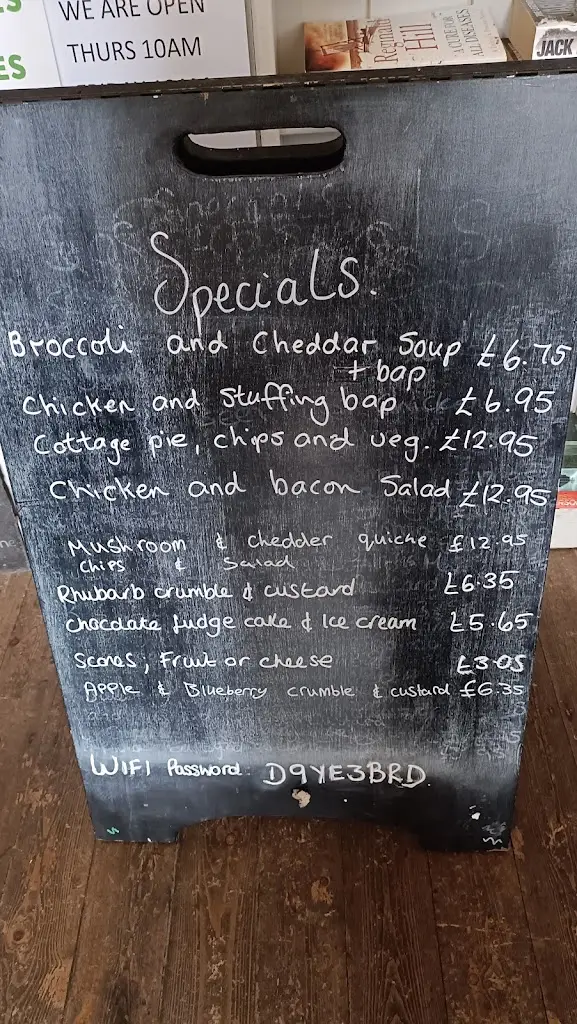 S
WE ARE OPEN
THURS 10AM
ES
Reginald
Hill
A CURE FOR
ALL DISEASES
JACK
Specials.
Broccoli and Cheddar Soup £6.75
+ bap
Chicken and stuffing bap £6.95
Cottage pie, chips and veg. £12.95
Chicken and bacon Salad £12.95
Mushroom & chedder quiche £12.95
chips & Salad
Rhubarb crumble & custard £6.35
Chocolate fudge cake & Ice cream £5.65
Scones, Fruit or cheese £3.05
Apple & Blueberry crumble & custard £6.35
WIFI Password: D9YE3BRD